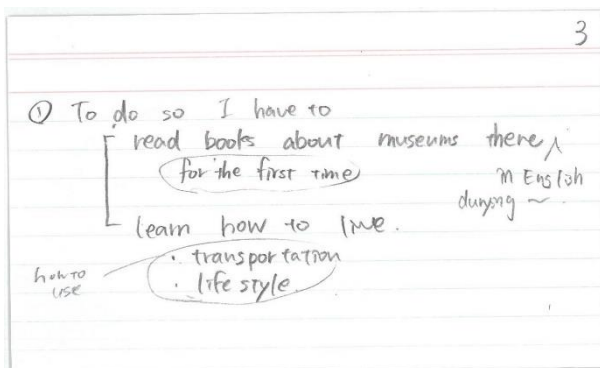 3
① To do so I have to
read books about museums there
for the first time
in English
during ~
learn how to live.
· transportation
how to use
· life style.